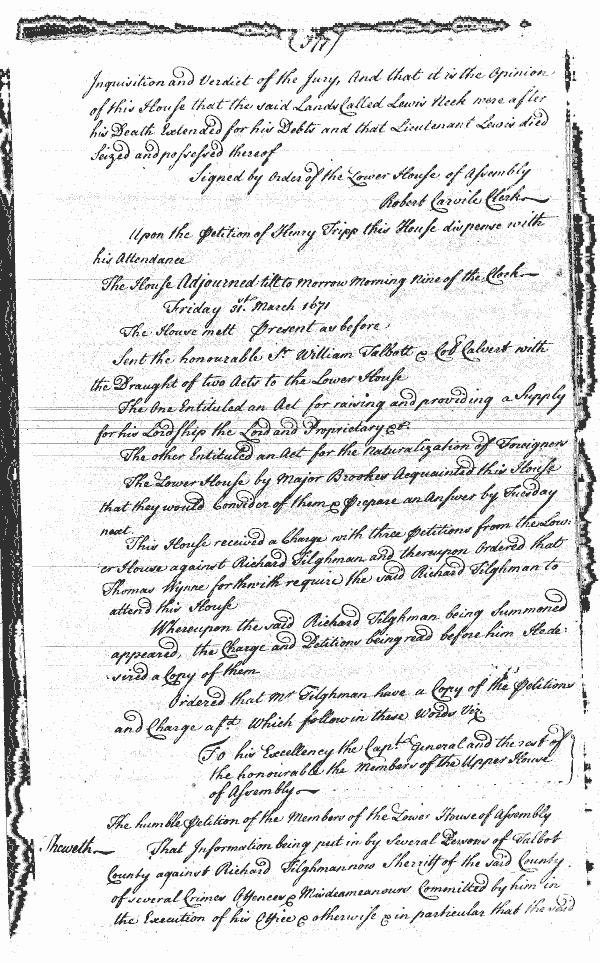 (377)
Inquisition and Verdict of the Jury, And that it is the Opinion
of this House that the said Lands Called Lewis Neck were after
his Death Extended for his Debts and that Lieutenant Lewis died
Seized and possessed thereof
Signed by Order of the Lower House of Assembly
Robert Carvile Clerk
Upon the Petition of Henry Tripp this House dispense with
his Attendance
The House Adjourned till to Morrow Morning Nine of the Clock
Friday 31st March 1671
The House mett Present as before
Sent the honourable Sr William Talbott & Coll Calvert with
the Draught of two Acts to the Lower House
The One Entituled an Act for raising and providing a Supply
for his Lordship the Lord and Proprietary &c.
The other Entituled an Act for the Naturalization of Foreigners
The Lower House by Major Brookes Acquainted this House
that they would Consider of them & Prepare an Answer by Tuesday
next.
This House received a Charge with three Petitions from the Low:
er House against Richard Tilghman and thereupon Ordered that
Thomas Wynne forthwith require the said Richard Tilghman to
attend this House
Whereupon the said Richard Tilghman being Summoned
appeared, the Charge and Petitions being read before him He de:
:sired a Copy of them
Ordered that Mr Tilghman have a Copy of the Petitions
and Charge afd. Which follow in these Words Viz
To his Excellency the Capt. General and the rest of
the honourable the Members of the Upper House
of Assembly
The humble Petition of the Members of the Lower House of Assembly
Sheweth
That Information being put in by Several Persons of Talbot
County against Richard Tilghman now Sherriff of the said County
of several Crimes Offences & Misdeameanours Committed by him in
the Execution of his Office & otherwise & in particular that the said